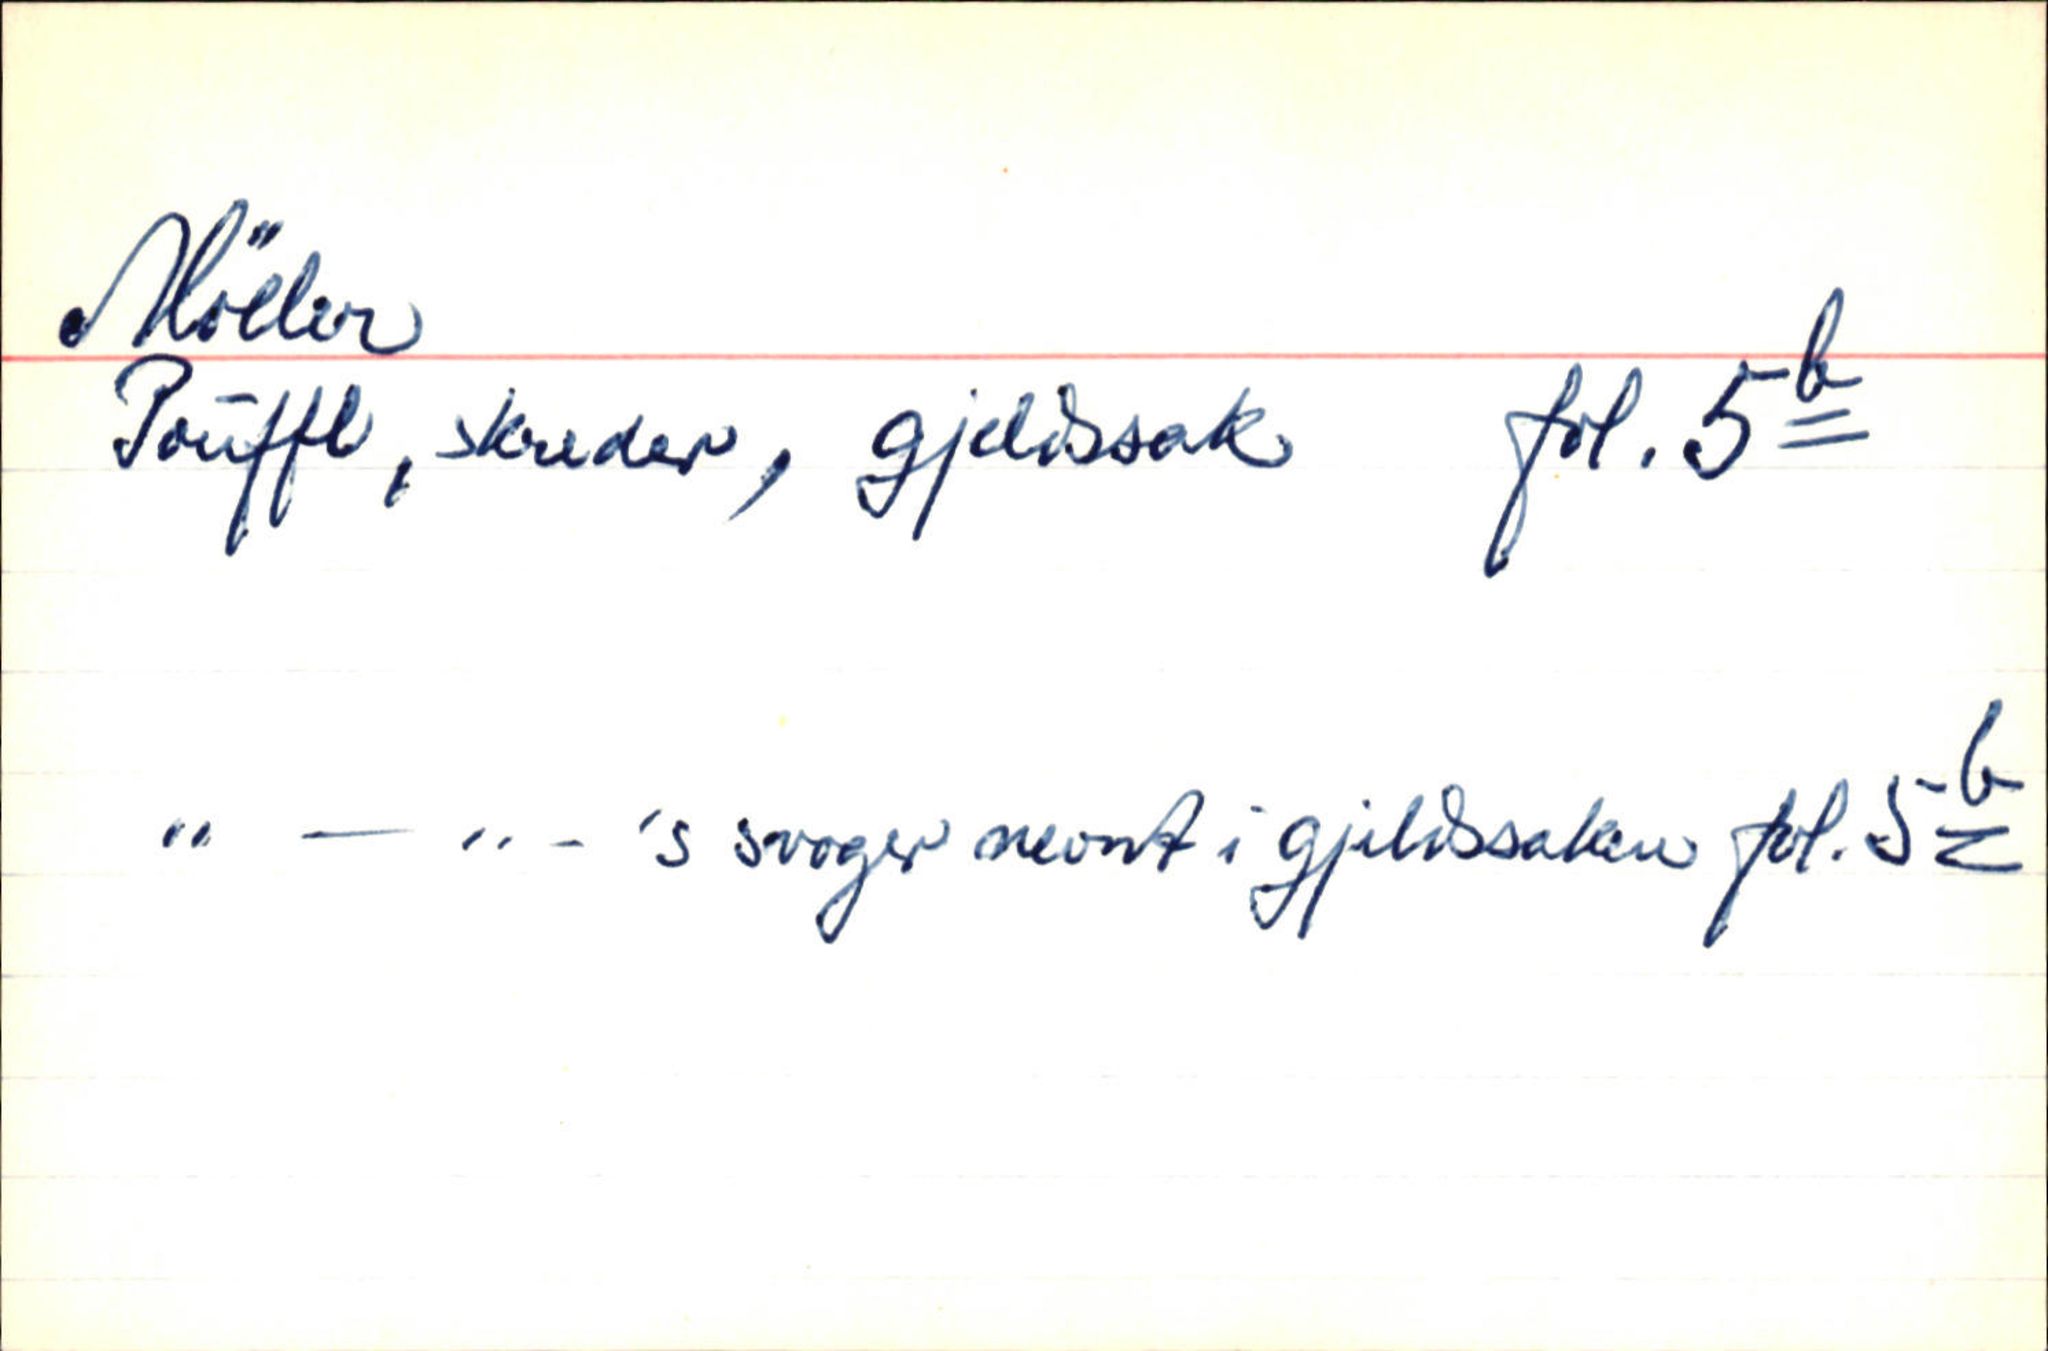 Möller
Pouffl, skreder, gjeldssak fol. 5b
" — " - 's svoger nevnt i gjeldssaken fol. 5b